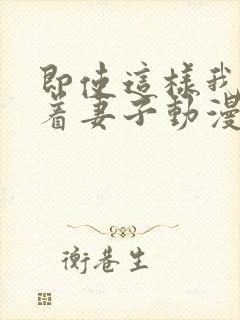 即使這樣我
着妻子動漫
衡巷生